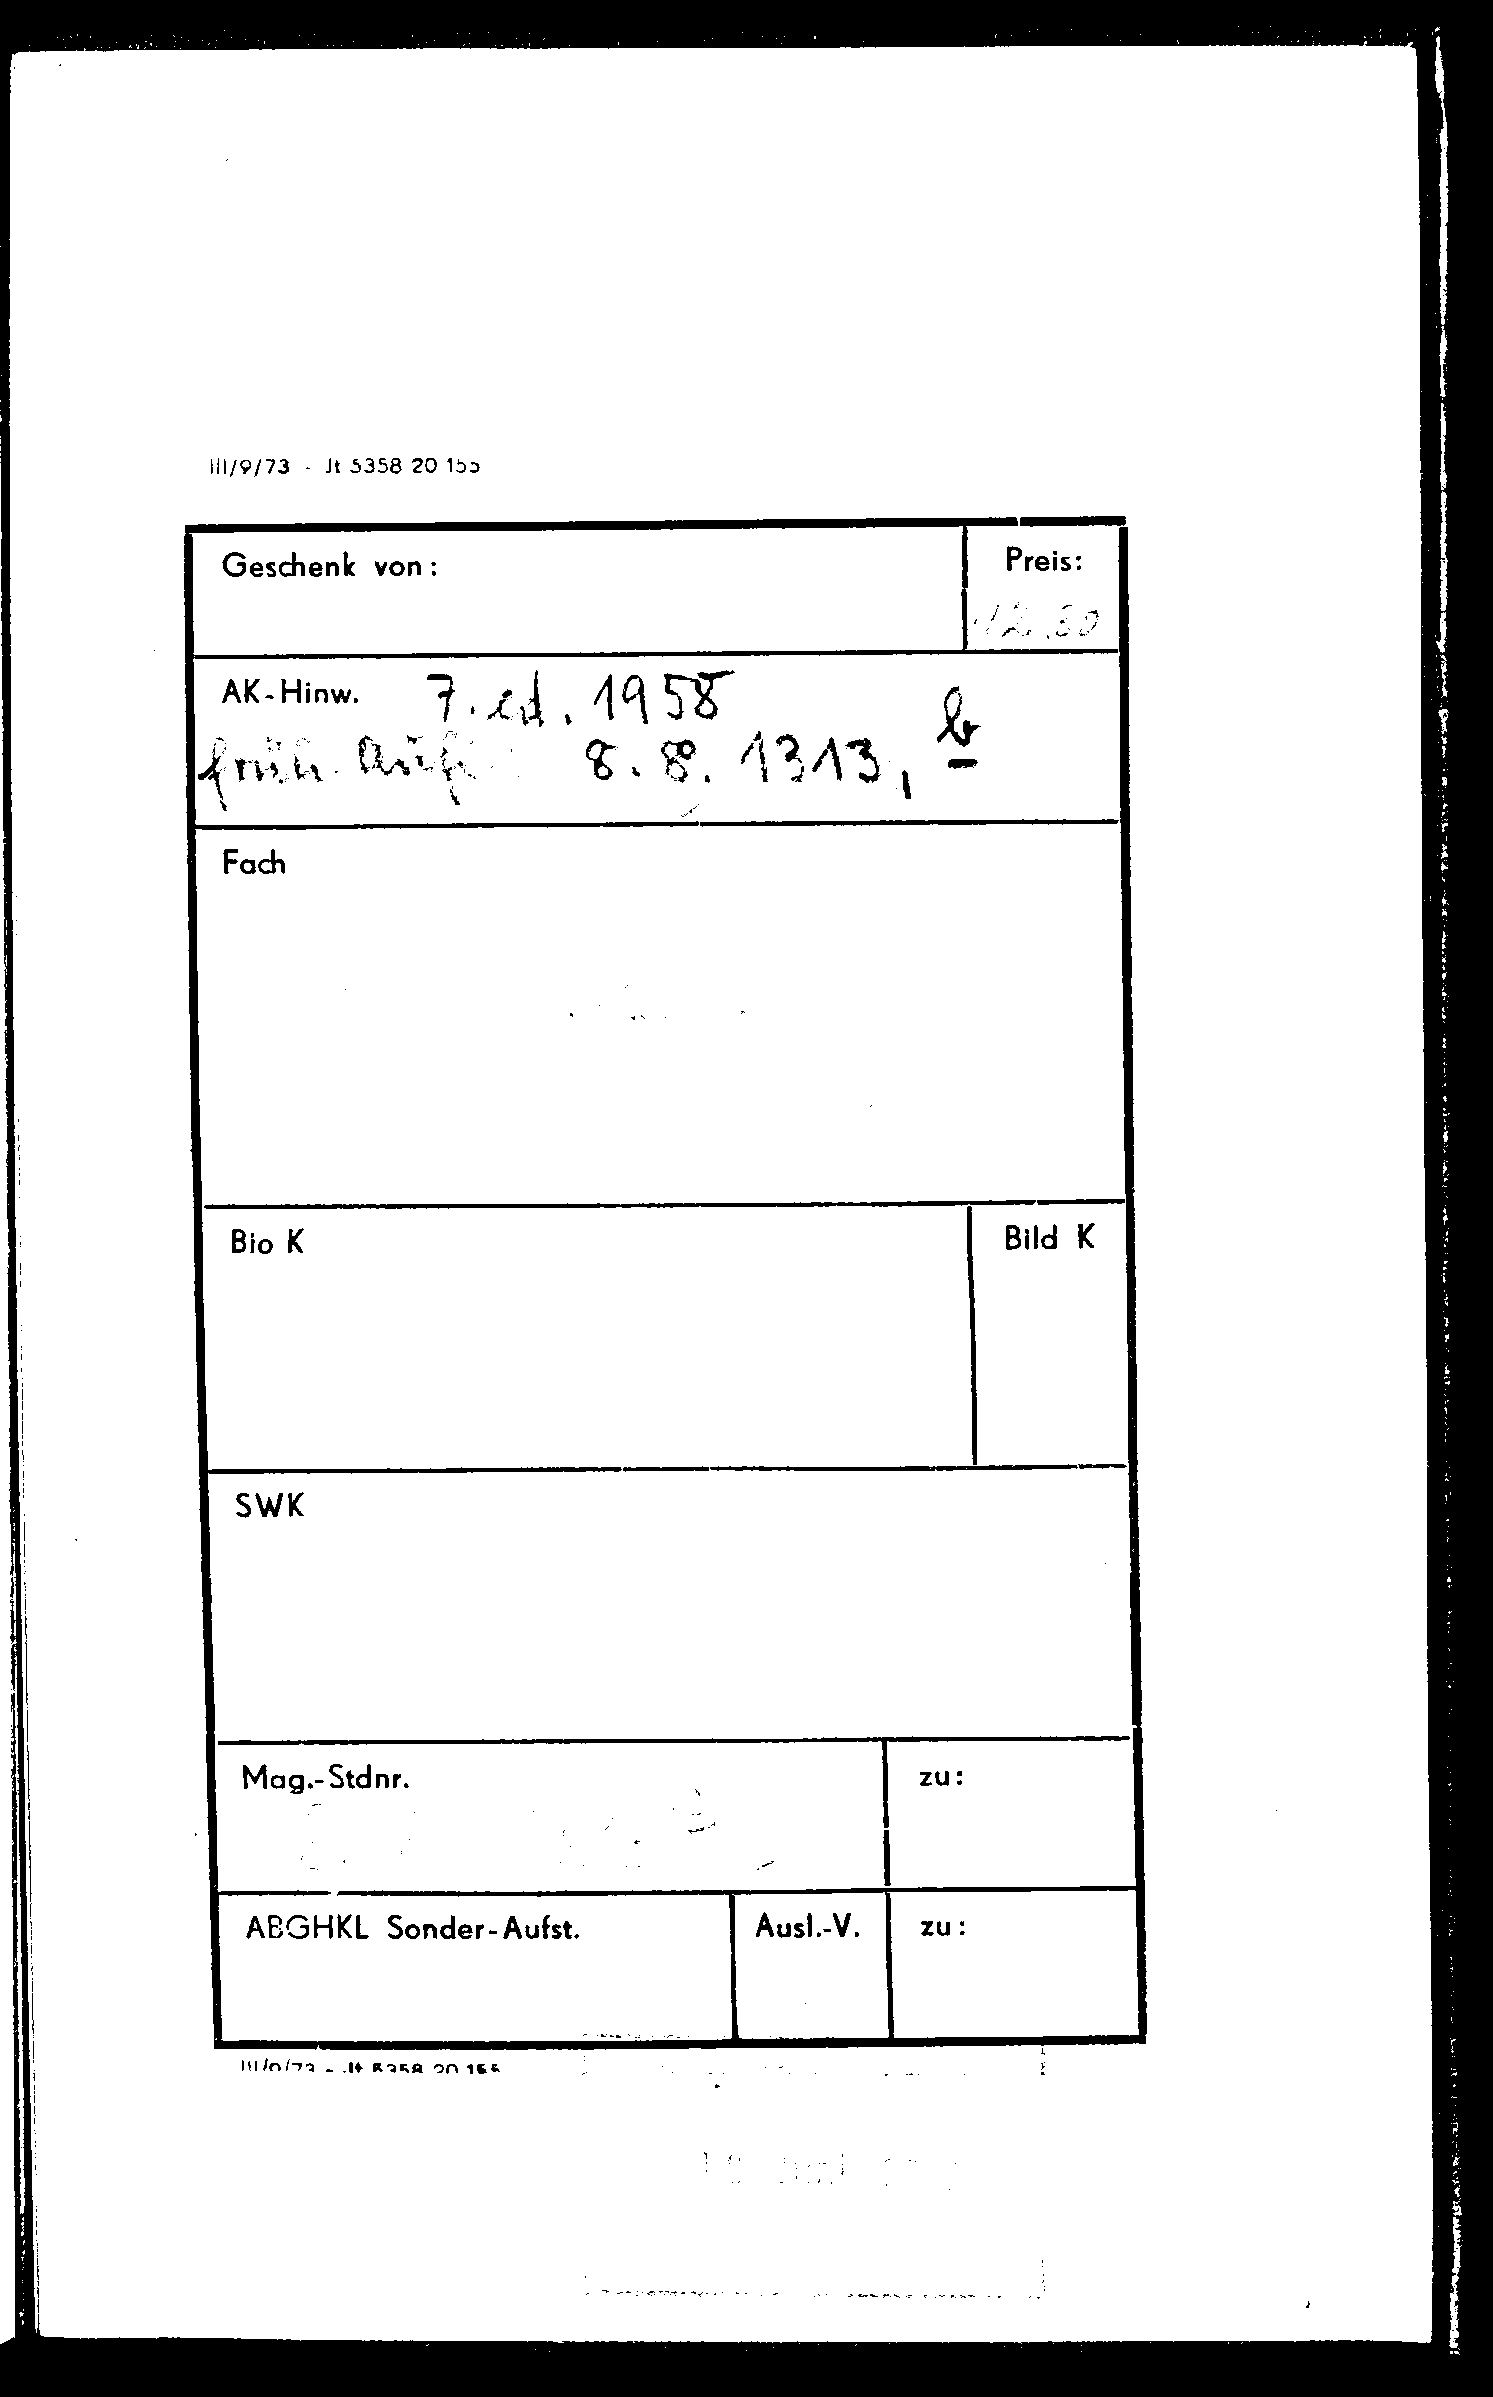 III/9/73 - Jt 5358 20 155
Geschenk von: Preis:
12.50
AK-Hinw. 7. ed. 1958
früh. Aufl. 8. 8. 1313, b
Fach
Bio K Bild K
SWK
Mag.-Stdnr. zu:
ABGHKL Sonder-Aufst. Ausl.-V. zu:
III/9/73 - Jt 5358 20 155